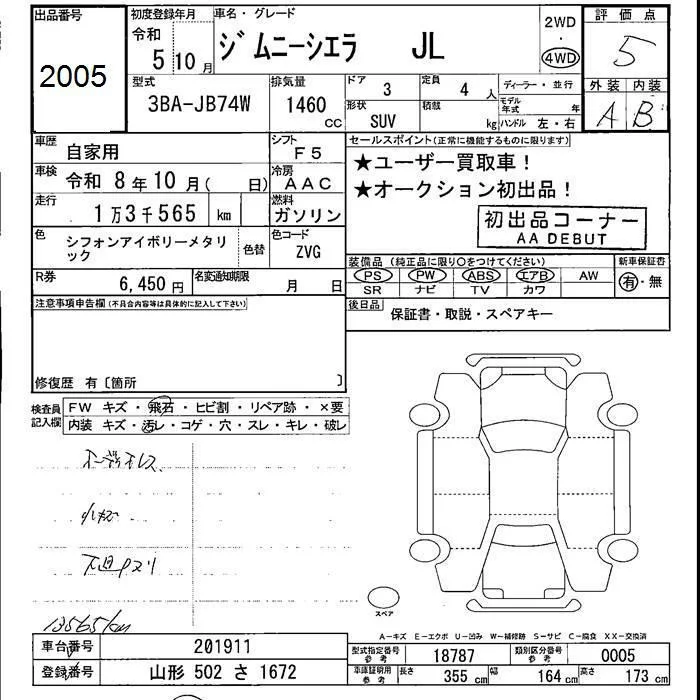 出品番号 初度登録年月 車名・グレード 2WD・4WD 評価点
2005 令和 5 10月 ジムニーシエラ JL 5
型式 排気量 ドア 定員 ディーラー・並行 外装 内装
3BA-JB74W 1460 cc 3 4人 モデル年式 年 A B
形状 SUV 積載 kg ハンドル 左・右
車歴 自家用 シフト F5 セールスポイント(正常に機能するものに限ります)
車検 令和 8年10月( 日) 冷房 AAC ★ユーザー買取車!
★オークション初出品!
走行 1万3千565 km 燃料 ガソリン 初出品コーナー
AA DEBUT
色 シフォンアイボリーメタリック 色替 色コード ZVG
装備品(純正品に限り○をつけてください) 新車保証書
PS PW ABS エアB AW 有・無
SR ナビ TV カワ
R券 6,450円 名変通知期限 月 日
後日品 保証書・取説・スペアキー
注意事項申告欄(不具合内容等は具体的に記入して下さい)
修復歴 有〔箇所 〕
検査員記入欄 FW キズ・飛石・ヒビ割・リペア跡・×要
内装 キズ・汚レ・コゲ・穴・スレ・キレ・破レ
オーディオレス
小キズ
13565km
スペア
A-キズ E-エクボ U-凹み W-補修跡 S-サビ C-腐食 XX-交換済
車台番号 201911 型式指定番号 参考 18787 類別区分番号 参考 0005
登録番号 山形 502 さ 1672 車庫証明用 参考 長さ 355cm 幅 164cm 高さ 173cm